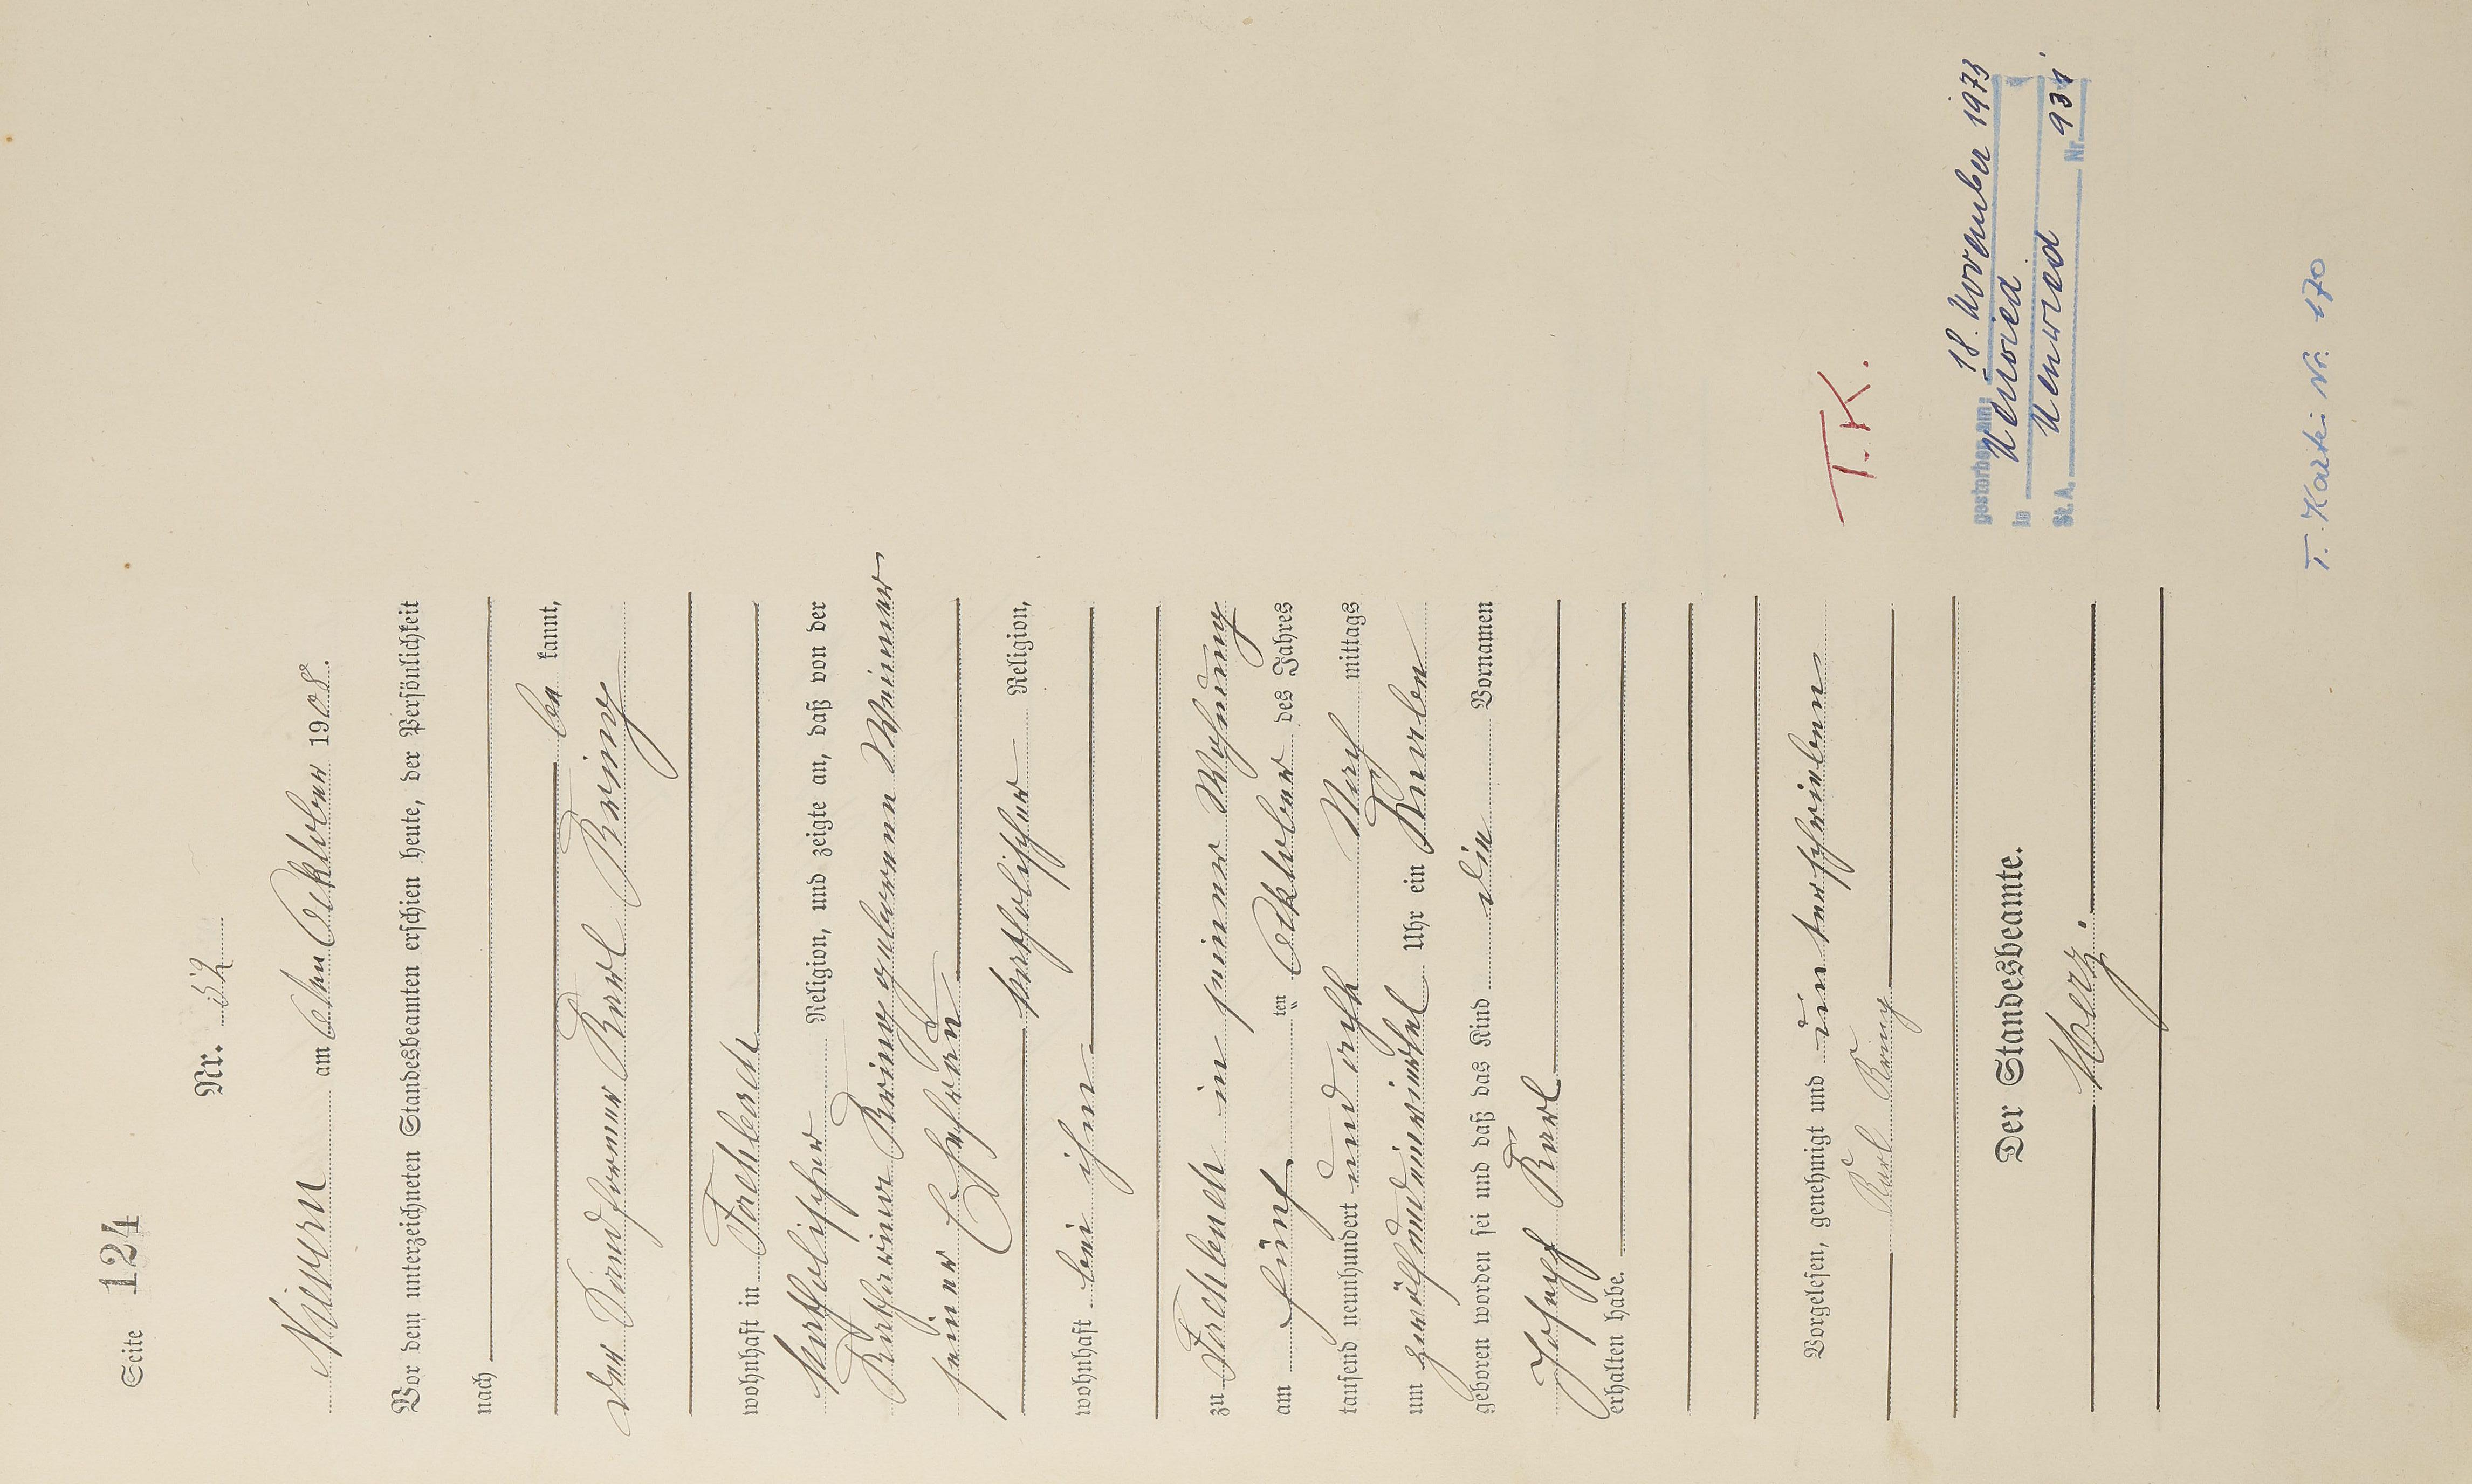 Seite 124
Nr. 52
Nievern am 6ten Oktober 1908.
Vor dem unterzeichneten Standesbeamten erschien heute, der Persönlichkeit
nach
be kannt,
der Karl Bring
wohnhaft in Fachbach
katholischer Religion, und zeigte an, daß von der
Katharina Bring geborenen Weimer
seiner Ehefrau
katholischer Religion,
wohnhaft bei ihm
zu Fachbach in seiner Wohnung
am fünf ten Oktober des Jahres
tausend neunhundert und acht Nach mittags
um zwölfundeinviertel Uhr ein Knabe
geboren worden sei und daß das Kind die Vornamen
Joseph Karl
erhalten habe.
Vorgelesen, genehmigt und unterschrieben
Karl Bring
Der Standesbeamte.
Herz.
T.K.
gestorben am: 18. November 1973
in Neuwied
St. A. Neuwied Nr. 931
T. Kartei Nr. 170